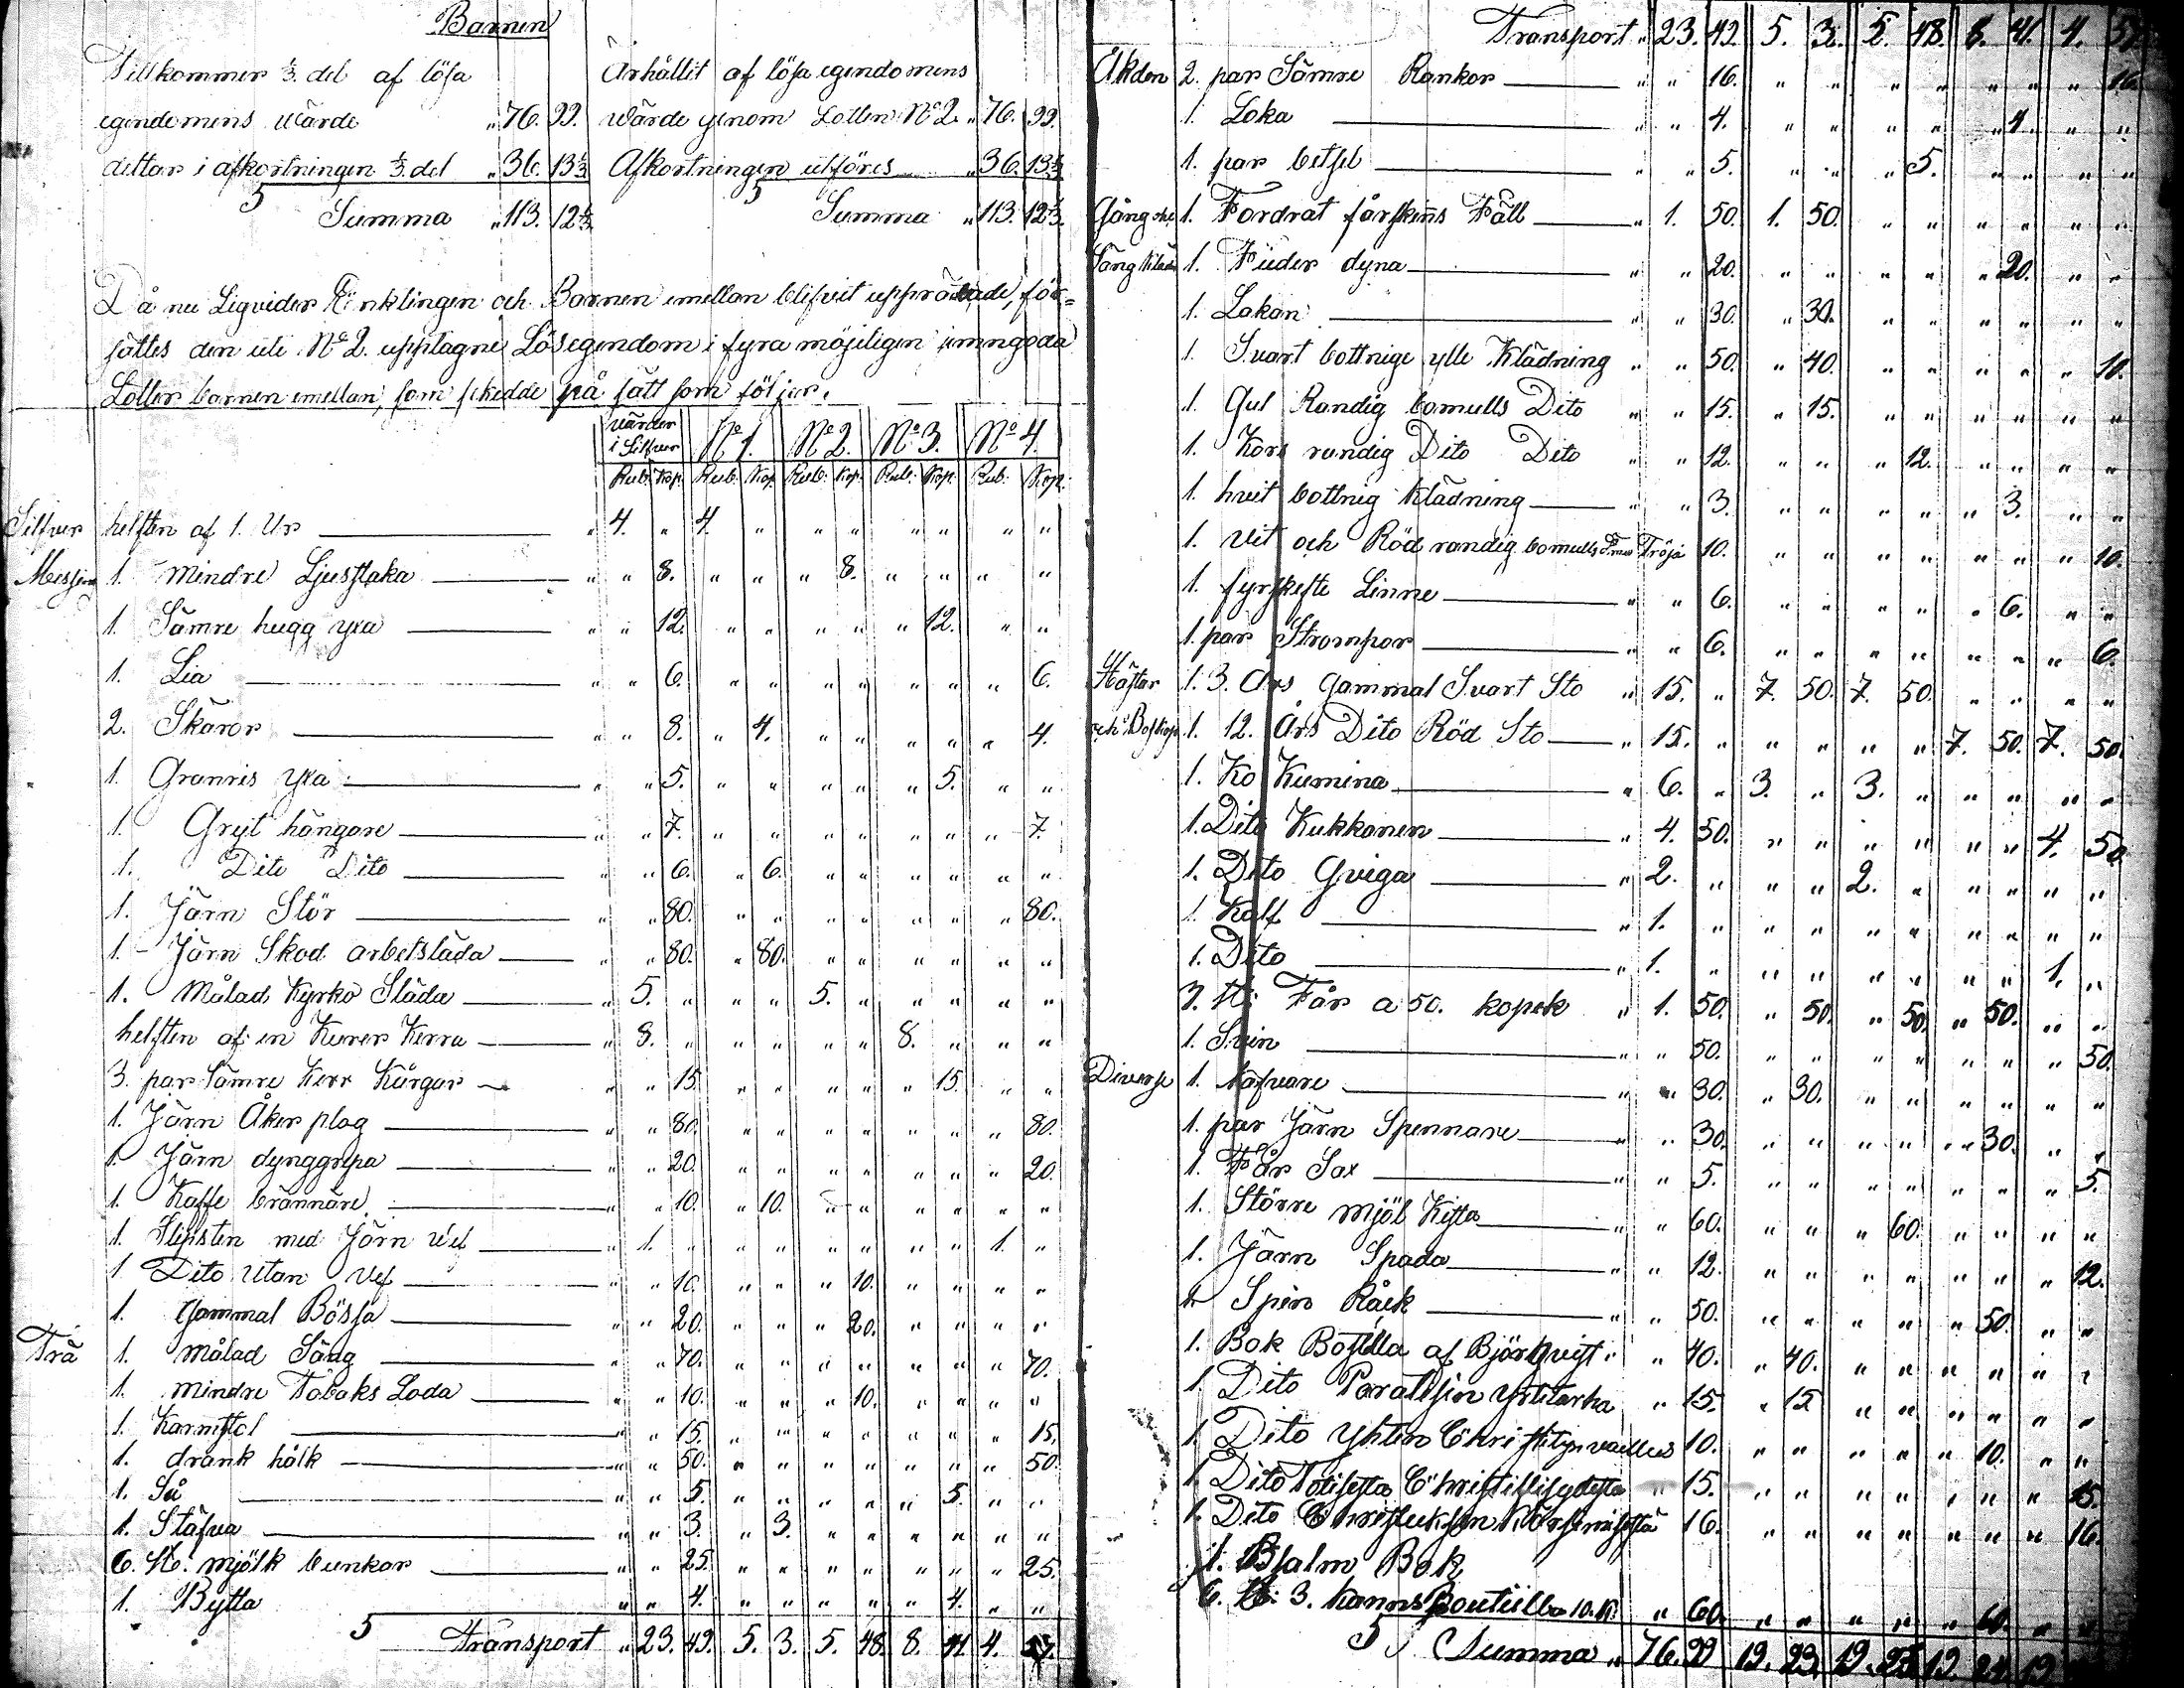 Barnen
Tillkommer ⅓ del af lösa
egendomens värde " 76. 99.
dettar i afkortningen ⅓ del " 36. 13⅓
Summa " 113. 12⅓
Ärhållit af lösa egendomens
värde genom Lotten No 2. " 76. 99.
Afkortningen utföres " 36. 13⅓
Summa " 113. 12⅓
Då nu Liqvider Enklingen och Barnen emellan blifvit upprättade, för=
sattes den uti No 2. upptagne Lösegendom i fyra möjeligen jemngoda
Lotter barnen emellan, som skedde på sätt som följer.
värder i Silfver No 1. No 2. No 3. No 4.
Rub. Kop. Rub. Kop. Rub. Kop. Rub. Kop. Rub. Kop.
Silfver helften af 1. Ur " 4. " 4. " " " " " " "
Messing 1. Mindre Ljusstaka " " 8. " " " 8. " " " "
1. Sämre hugg yxa " " 12. " " " " " 12. " "
1. Lia " " 6. " " " " " " " 6.
2. Skäror " " 8. " 4. " " " " " 4.
1. Granris yxa " " 5. " " " " " 5. " "
1. Gryt hängare " " 7. " " " " " " " 7.
1. Dito Dito " " 6. " 6. " " " " " "
1. Järn Stör " " 80. " " " " " " " 80.
1. Järn Skod arbetsläda " " 80. " 80. " " " " " "
1. Målad Kyrko Släda " 5. " " " 5. " " " " "
helften af en Kurer Kerra " 8. " " " " " 8. " " "
3. par Sämre Kerr Kärgor " " 15. " " " " " 15. " "
1. Järn Åker plog " " 80. " " " " " " " 80.
1. Järn dynggrepa " " 20. " " " " " " " 20.
1. Kaffe brännare " " 10. " 10. " " " " " "
1. Slipsten med Järn vef " 1. " " " " " " " 1. "
1 Dito utan vef " " 10. " " " 10. " " " "
1. gammal Bössa " " 20. " " " 20. " " " "
Trä 1. målad Säng " " 70. " " " " " " " 70.
1. Mindre Tobaks Loda " " 10. " " " 10. " " " "
1. Karmstol " " 15. " " " " " " " 15.
1. drank hålk " " 50. " " " " " " " 50.
1. Så " " 5. " " " " " 5. " "
1. Stäfva " " 3. " 3. " " " " " "
6. St: mjölk bunkor " " 25. " " " " " " " 25.
1. Bytta " " 4. " " " " " 4. " "
5 Transport " 23. 49. 5. 3. 5. 48. 8. 41. 4. 57.
Transport " 23. 42. 5. 3. 5. 48. 8. 41. 4. 57.
Åkdon 2. par Sämre Rankor " " 16. " " " " " " " 16.
1. Loka " " 4. " " " " " 4. " "
1. par betsel " " 5. " " " 5. " " " "
Gång och 1. Fordrat fårskins Fäll " 1. 50. 1. 50. " " " " " "
Säng kläder 1. Fäder dyna " " 20. " " " " " 20. " "
1. Lakan " " 30. " 30. " " " " " "
1. Svart bottnige ylle Klädning " " 50. " 40. " " " " " 10.
1. Gul Randig bomulls Dito " " 15. " 15. " " " " " "
1. Kors randig Dito Dito " " 12. " " " 12. " " " "
1. hvit bottnig Klädning " " 3. " " " " " 3. " "
1. Vit och Röd randig bomulls Tröja 10. " " " " " " " 10.
1. fyrskefte Linne " " 6. " " " " " 6. " "
1. par Strompor " " 6. " " " " " " " 6.
Hästar 1. 3. Års gammal Svart Sto " 15. " 7. 50. 7. 50. " " " "
och Boskap 1. 12. Års Dito Röd Sto " 15. " " " " " 7. 50. 7. 50.
1. Ko Kumina " 6. " 3. " 3. " " " " "
1. Dito Kukkonen " 4. 50. " " " " " " 4. 50
1. Dito Qviga " 2. " " " 2. " " " " "
1. Kalf " 1. " " " " " " " " "
1. Dito " 1. " " " " " " " 1. "
3. St: Får a 50. kopek " 1. 50. " 50. " 50. " 50. " "
1. Svin " " 50. " " " " " " " 50.
Diverse 1. Nafvare " " 30. " 30. " " " " " "
1. par Järn Spennare " " 30. " " " " " 30. " "
1. Får Sax " " 5. " " " " " " " 5.
1. Större mjöl Kista " " 60. " " " 60. " " " "
1. Järn Spada " " 12. " " " " " " " 12.
1. Spin Råck " " 50. " " " " " 50. " "
1. Bok Postilla af Björkqvist " " 40. " 40. " " " " " "
1. Dito Paratisin Yrtitarha " 15. " 15 " " " " " "
1. Dito Yhten Christityn vaellus 10. " " " " " 10. " "
1. Dito Totisesta Christillisydesta " 15. " " " " " " " 15.
1. Dito 16. " " " " " " " 16.
1. Psalm Bok
6. St: 3. kanns Boutiller 10. K. " 60. " " " " " 60. " "
5 Summa " 76. 99 19. 23. 19. 25. 19. 24. 19.